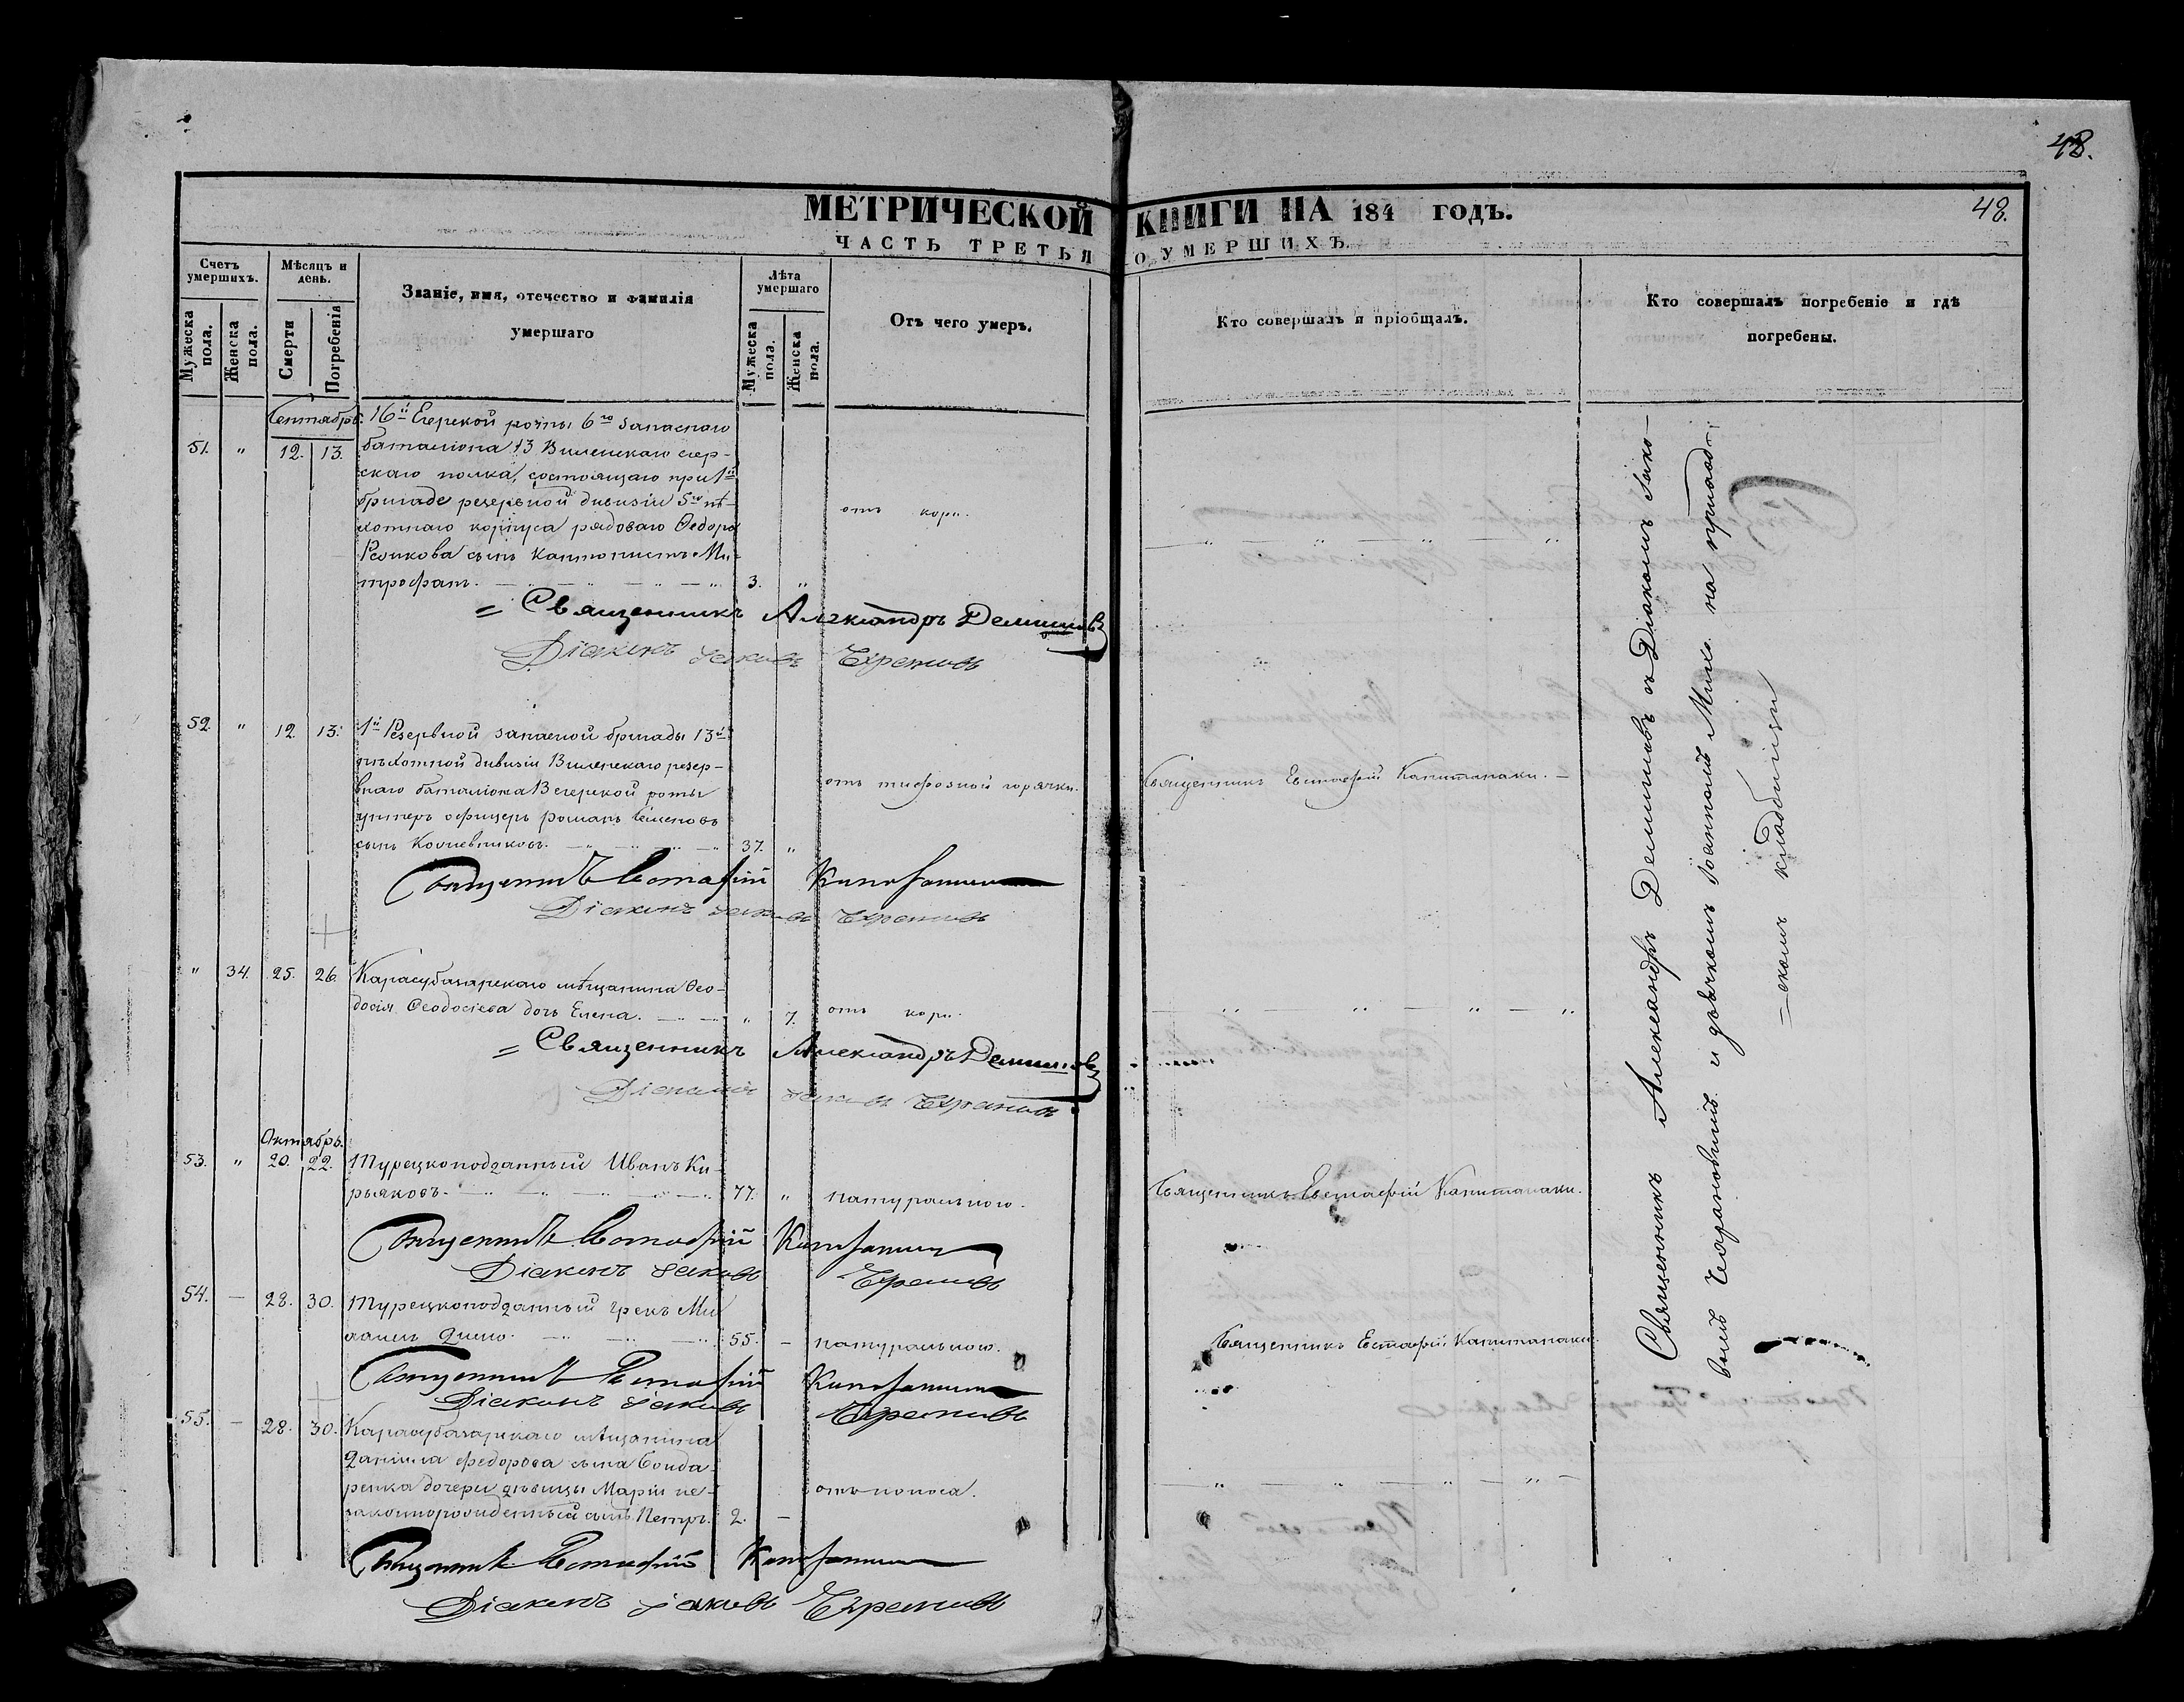 48.
МЕТРИЧЕСКОЙ КНИГИ НА 184 ГОДЪ.
48.
ЧАСТЬ ТРЕТЬЯ О УМЕРШИХЪ.
Счетъ умершихъ.
Мѣсяцъ и день.
Званіе, имя, отечество и фамилія умершаго
Лѣта умершаго
Отъ чего умеръ.
Кто совершалъ и пріобщалъ.
Кто совершалъ погребеніе и гдѣ погребены.
Мужеска пола.
Женска пола.
Смерти
Погребенія
Мужеска пола.
Женска пола.
Сентябрь.
51. " 12. 13.
16й Егерской роты 6го запаснаго
баталіона 13 Виленскаго егер-
скаго полка, состоящаго при 1й
бригаде резервной дивизіи 5го пѣ-
хотнаго корпуса рядоваго Ѳедора
сынъ кантонистъ Ми-
трофанъ. 3. "
отъ кори.
= Священникъ Александръ Демяновъ
Діаконъ Іаковъ
52. " 12. 13.
1й Резервной запасной бригады 13й
пѣхотной дивизіи Виленскаго резер-
внаго баталіона В егерской роты
унтеръ офицеръ романъ Семеновъ
сынъ 37. "
отъ тифозной горячки.
Священникъ Евстафій Капитанаки.
Священникъ Евстафій Капитанаки
Діаконъ Іаковъ
" 34. 25. 26.
Карасубазарскаго мѣщанина Ѳео-
досія Ѳеодосіева дочь Елена. " 7.
отъ кори.
= Священникъ Александръ Демяновъ
Діаконъ Іаковъ
Октябрь.
53. " 20. 22.
Турецкоподданный Иванъ Ки-
рьяковъ. 77. "
натуральною.
Священникъ Евстафій Капитанаки.
Священникъ Евстафій Капитанаки
Діаконъ Іаковъ
54. — 28. 30.
Турецкоподданный грекъ Ми-
55. —
натуральною.
Священникъ Евстафій Капитанаки.
Священникъ Евстафій Капитанаки
Діаконъ Іаковъ
55. — 28. 30.
Карасубазарскаго мѣщанина
Даніила Федорова сына Бонда-
ренка дочери дѣвицы Маріи не-
законнорожденный сынъ Петръ. 2. —
отъ поноса.
Священникъ Евстафій Капитанаки
Діаконъ Іаковъ
Священникъ Александръ съ Діакономъ Іако-
вомъ и дьячкомъ Іоанномъ на приход-
=скомъ кладбищѣ